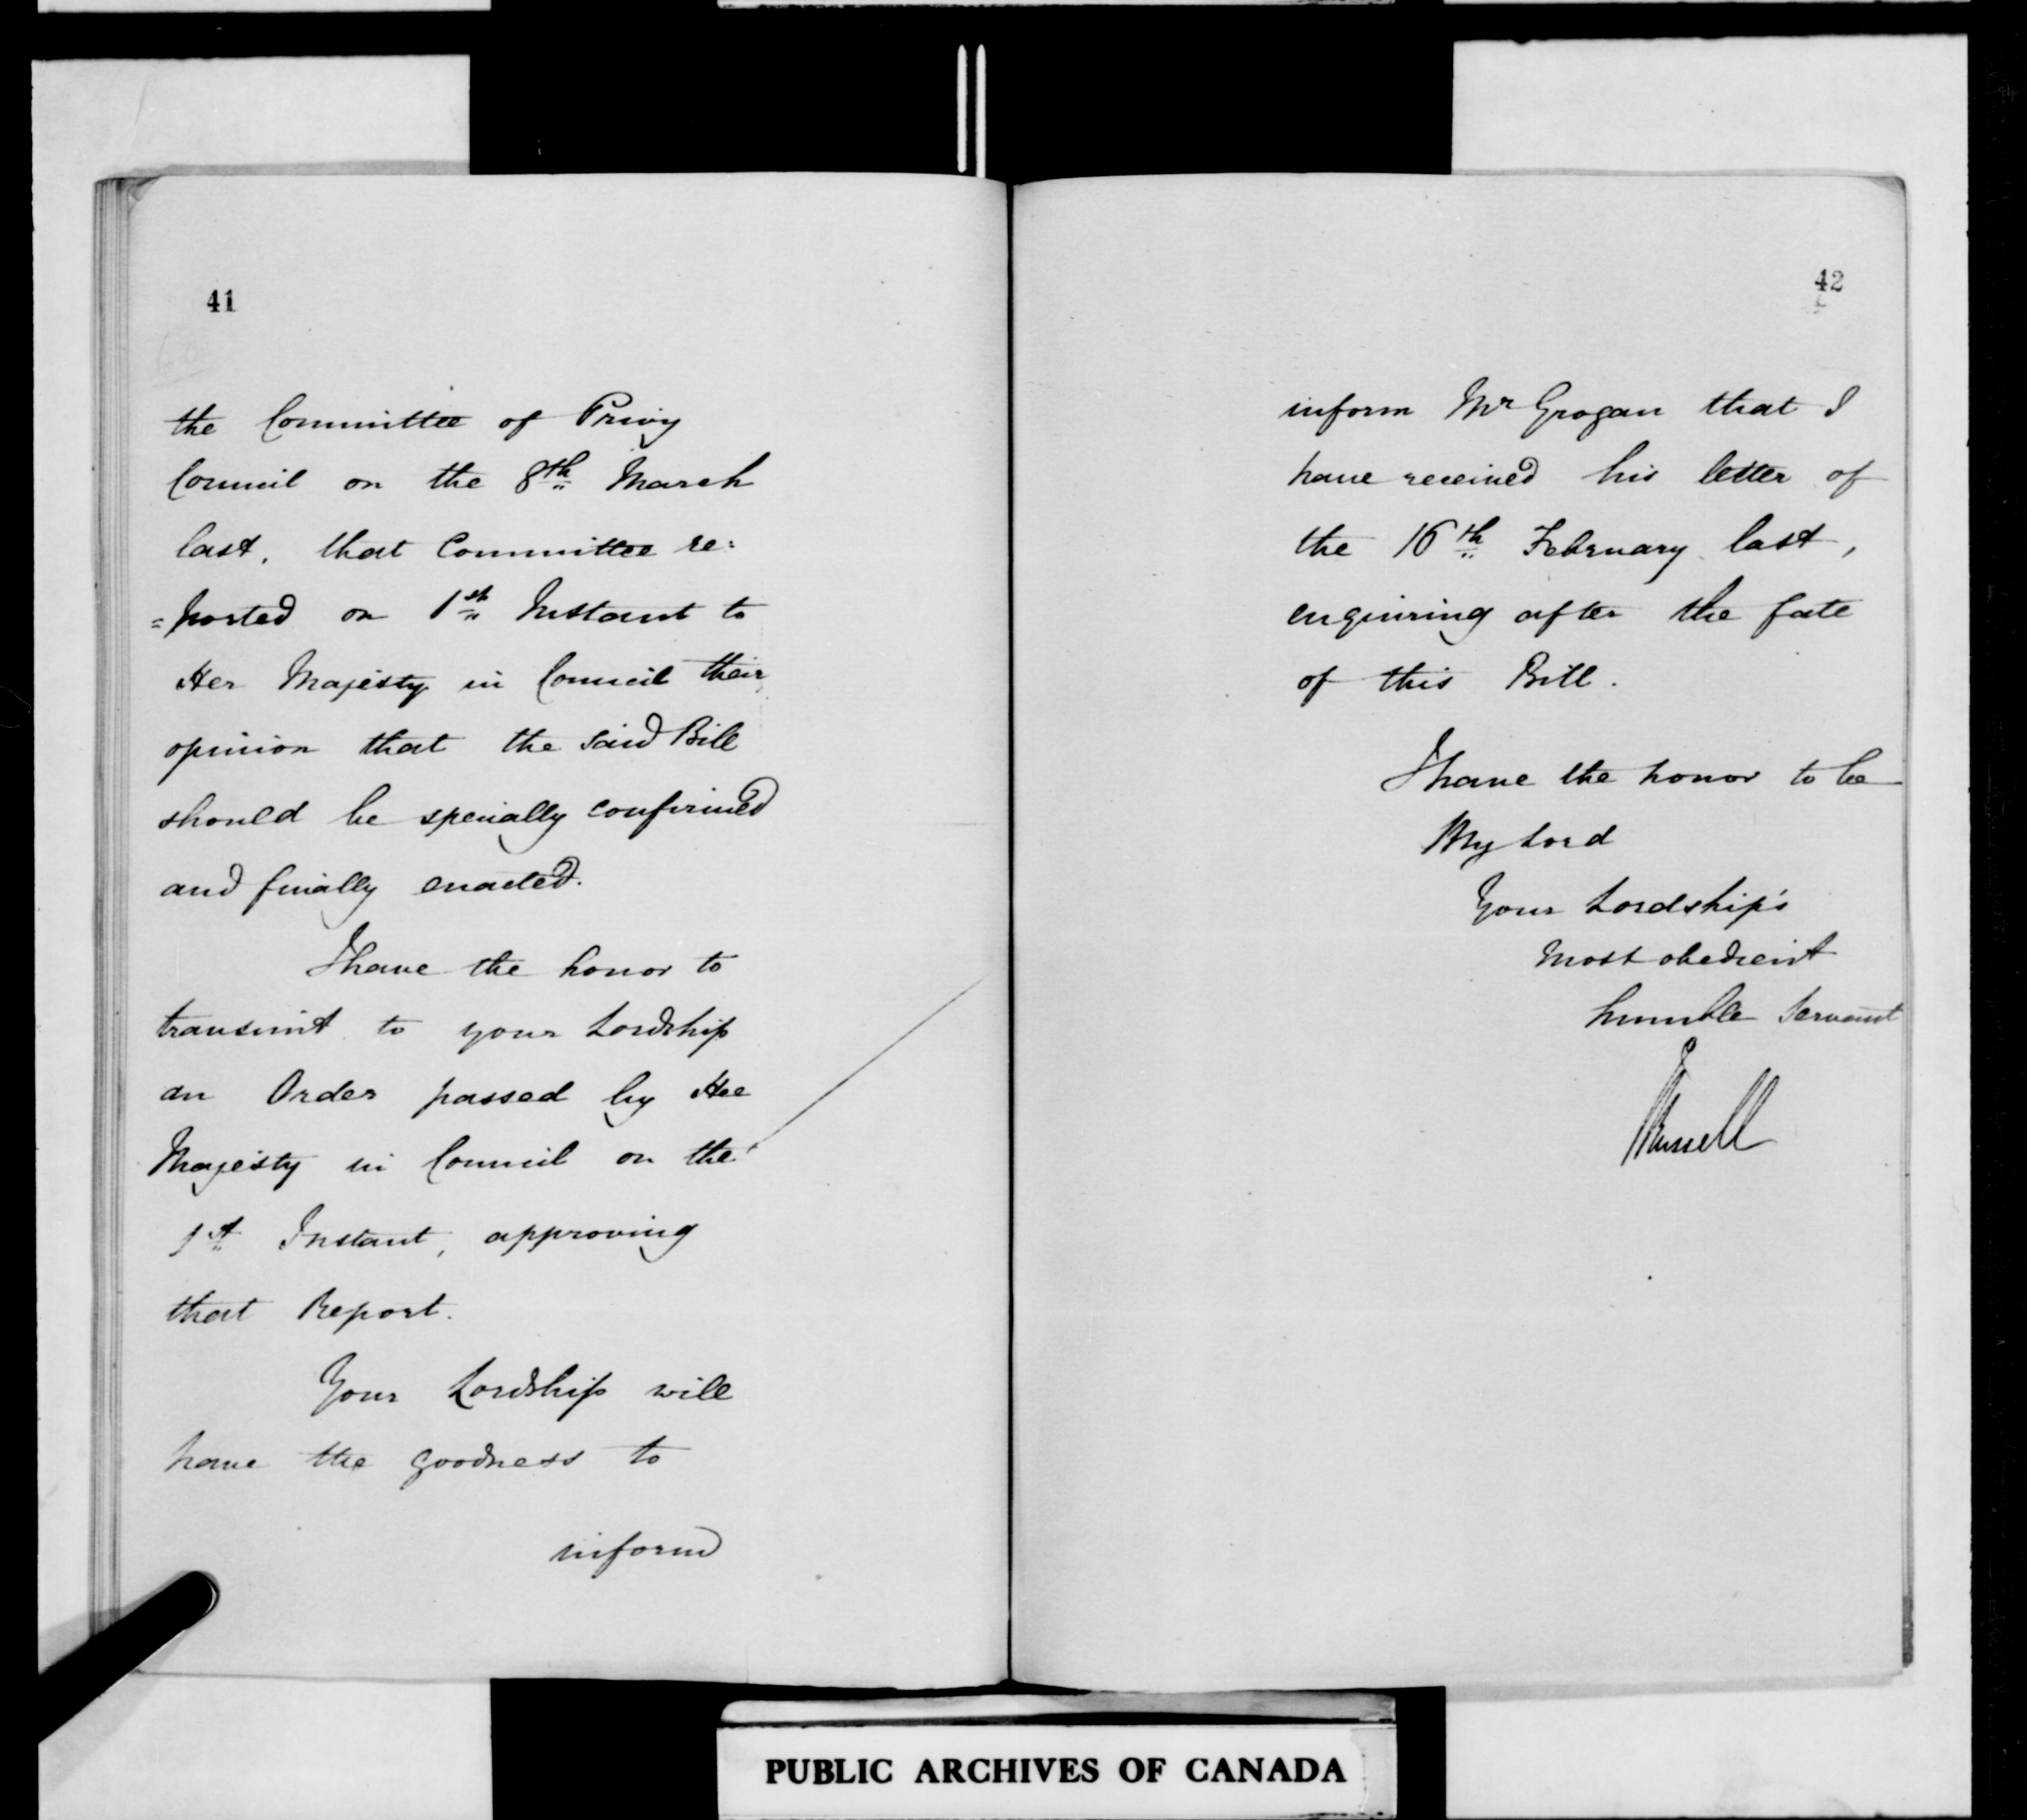 41
the Committee of Privy
Council on the 8th March
last, that Committee re=
=ported on 1st Instant to
Her Majesty in Council their
opinion that the said Bill
should be specially confirmed
and finally enacted.
I have the honor to
transmit to your Lordship
an Order passed by Her
Majesty in Council on the
1st Instant, approving
that Report.
Your Lordship will
have the goodness to
inform
42
inform Mr Grogan that I
have received his letter of
the 16th February last,
enquiring after the fate
of this Bill.
I have the honor to be
My Lord
Your Lordship's
most obedient
humble Servant
J Russell
PUBLIC ARCHIVES OF CANADA